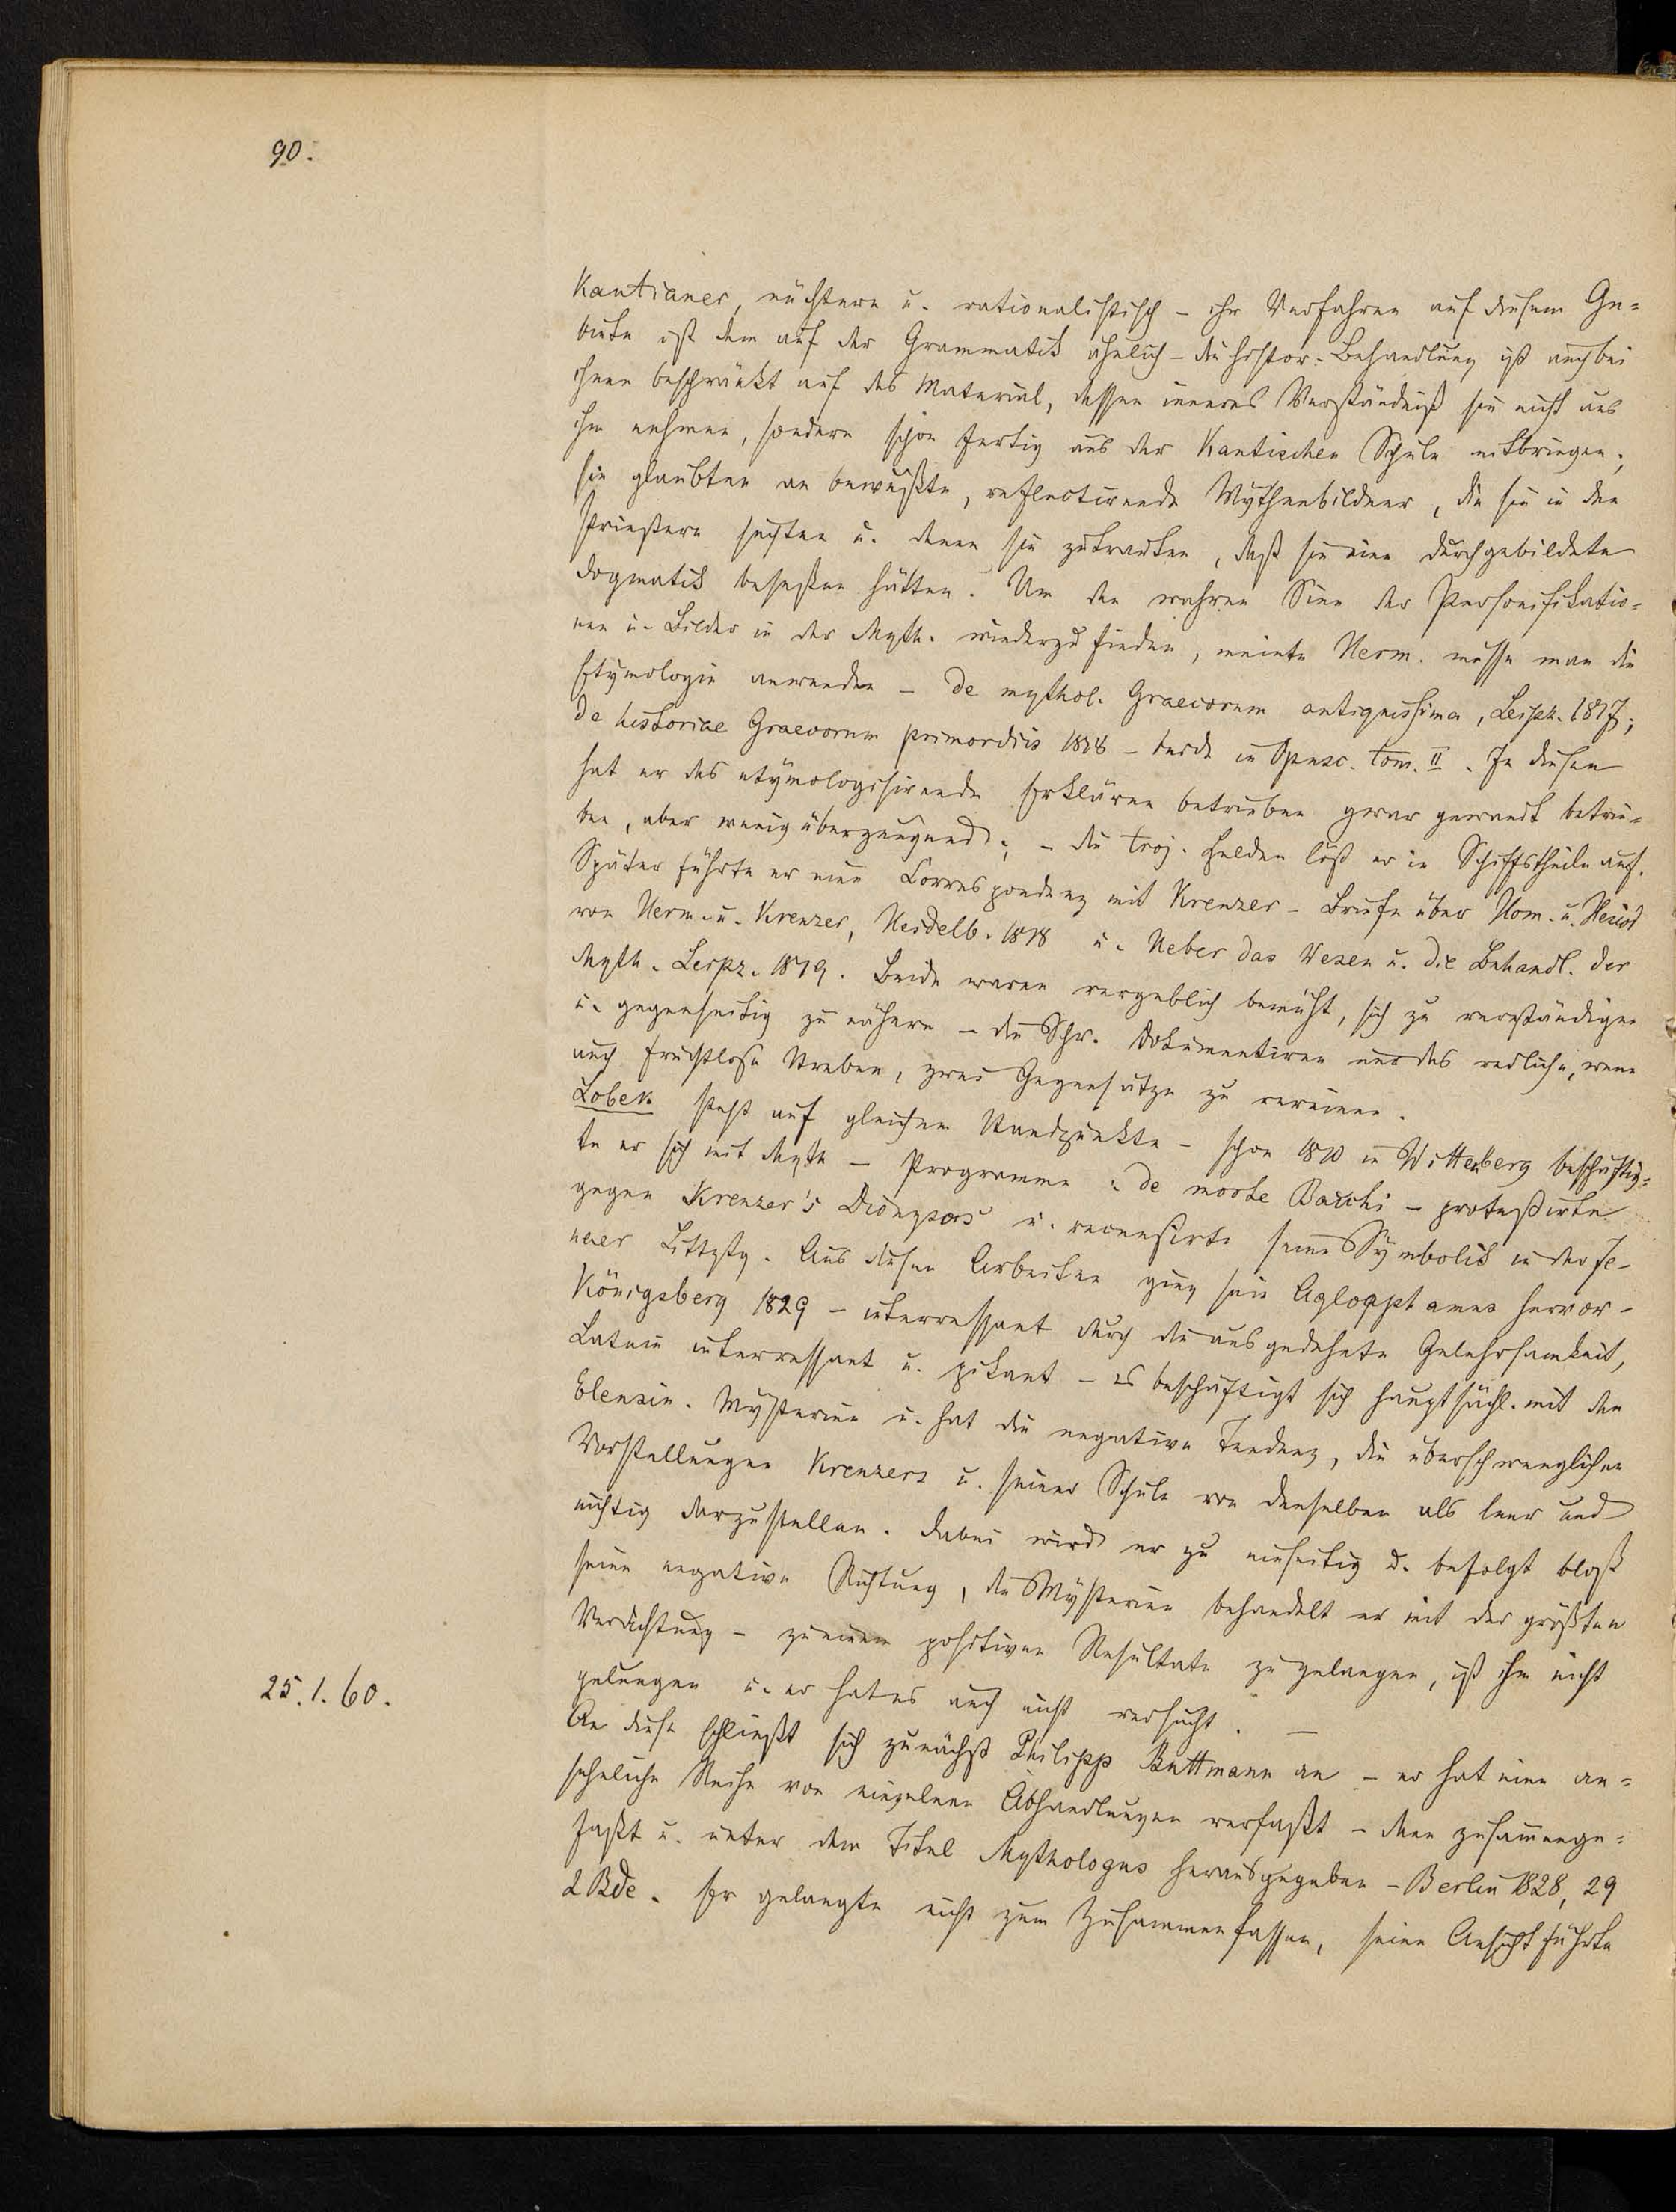 90.
Kantianer, nüchtern u. rationalistisch – ihr Verfahren auf diesem Ge=
biete ist dem auf der Grammatik ähnlich – die histor. Behandlung ist auch bei
ihnen beschränkt auf das Material, dessen inneres Verständniß sie nicht aus
ihm nehmen, sondern schon fertig aus der Kantischen Schule mitbringen;
sie glaubten an bewußte, reflectirende Mythenbildner, die sie in den
Priestern suchten u. denen sie zutrauten, daß sie eine durchgebildete
Dogmatik beseßen hätten. Um den wahren Sinn der Personifikatio=
nen u. Bilder in der Myth. wiederzufinden, meinte Herm. müsse man die
Etymologie anwenden – de mythol. Graecorum antiquissima, Leipz. 1817;
de historiae Graecorum primordiis 1818 – beide in Opusc. tom. II. In diesen
hat er das etymologisirende Erklären betrieben zwar gewandt betrie=
ben, aber wenig überzeugend; – die troj. Helden löst er in Schiffstheile auf.
Später führte er eine Correspondenz mit Kreuzer – Briefe über Hom. u. Hesiod
von Herm. u. Kreuzer, Heidelb. 1818 u. Ueber das Wesen u. die Behandl. der
Myth. Leipz. 1819. Beide waren vergeblich bemüht, sich zu verständigen
u. gegenseitig zu nähern – die Schr. dokumentiren nur das redliche, wenn
auch fruchtlose Streben, zwei Gegensätze zu vereinen.
Lobek steht auf gleichem Standpunkte – schon 1810 in Wittenberg beschäftig=
te er sich mit Myth – Programme: de morte Bacchi – protestirte
gegen Kreuzer's Dionysos u. recensirte seine Symbolik in der Je-
naer Littztg. Aus diesen Arbeiten ging sein Aglaophamus hervor –
Königsberg 1829 – interressant durch die ausgedehnte Gelehrsamkeit,
Latein interressant u. pikant – es beschäftigt sich hauptsächl. mit den
Eleusin. Mysterien u. hat die negative Tendenz, die überschwenglichen
Vorstellungen Kreuzers u. seiner Schule von denselben als leer und
nichtig darzustellen. Dabei wird er zu einseitig u. befolgt bloß
seine negative Richtung, die Mysterien behandelt er mit der größten
Verachtung – zu einem positiven Resultate zu gelangen, ist ihm nicht
gelungen u. er hat es auch nicht versucht. –
25.1.60.
An diese schließt sich zunächst Philipp Buttmann an – er hat eine an=
sehnliche Reihe von einzelnen Abhandlungen verfaßt – dann zusammenge=
faßt u. unter dem Titel Mythologus herausgegeben – Berlin 1828, 29
2 Bde. Er gelangte nicht zum Zusammenfassen, seine Ansicht führte